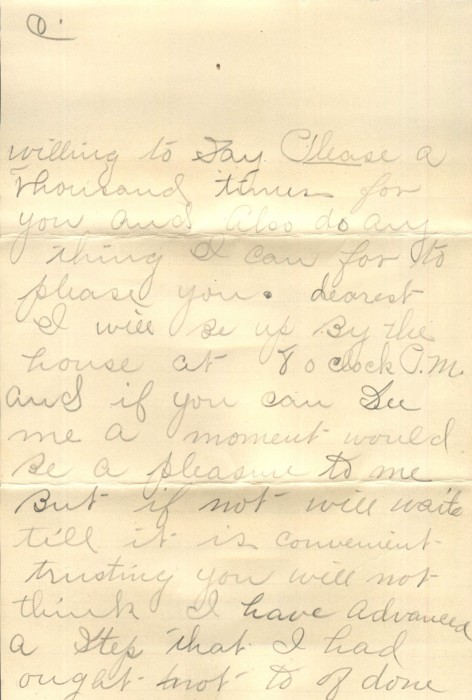 willing to Say Please a
thousand times for
you and Also do any
thing I can for to
please you. dearest
I will Be up By the
house at 8 o clock P.M.
And if you can See
me a moment would
Be a pleasure to me
But if not will waite
till it is convenient
trusting you will not
think I have advanced
a Step that I had
ought not to of done